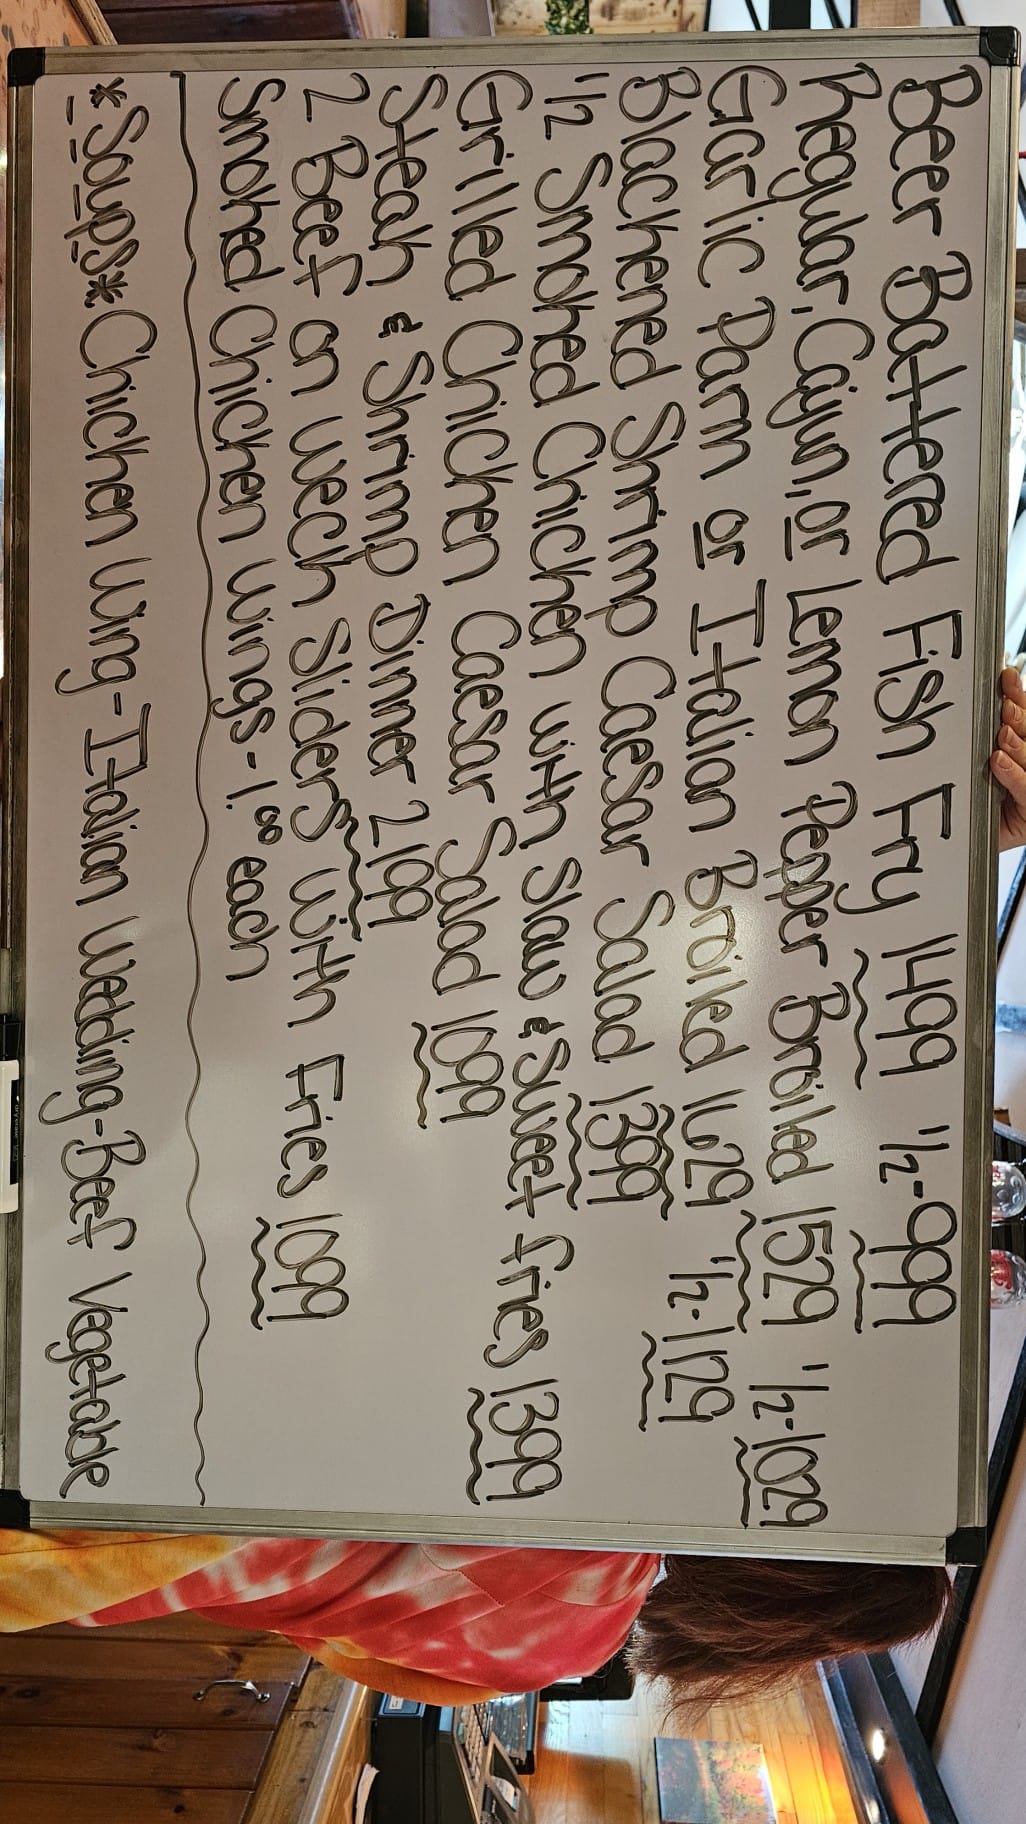 Beer Battered Fish Fry 1499 1/2-999
Regular, Cajun, or Lemon Pepper Broiled 1529 1/2-1029
Garlic Parm or Italian Broiled 1629 1/2-1129
Blackened Shrimp Caesar Salad 1399
1/2 Smoked Chicken with Slaw & Sweet fries 1399
Grilled Chicken Caesar Salad 1099
Steak & Shrimp Dinner 2199
2 Beef on Weck Sliders with Fries 1099
Smoked Chicken Wings-1.00 each
*Soups* Chicken Wing-Italian Wedding-Beef Vegetable